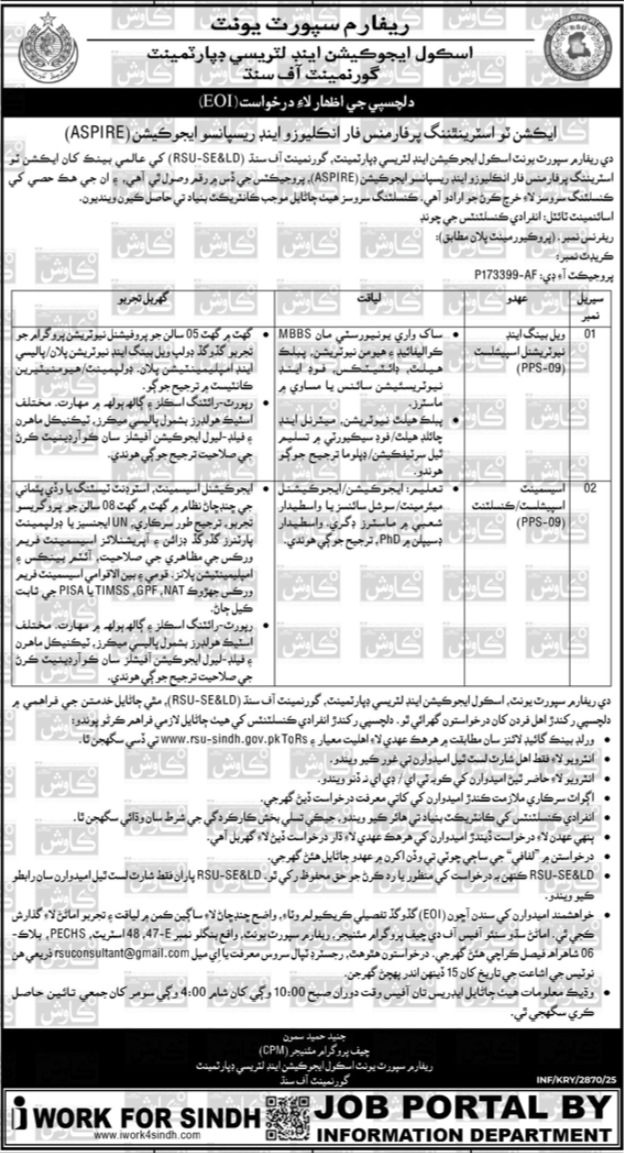 ريفارم سپورٽ يونٽ
اسڪول ايجوڪيشن اينڊ لٽريسي ڊپارٽمينٽ
گورنمينٽ آف سنڌ
دلچسپي جي اظهار لاءِ درخواست (EOI)
ايڪشن ٽو اسٽرينٿننگ پرفارمنس فار انڪليوزو اينڊ ريسپانسو ايجوڪيشن (ASPIRE)
دي ريفارم سپورٽ يونٽ اسڪول ايجوڪيشن اينڊ لٽريسي ڊپارٽمينٽ، گورنمينٽ آف سنڌ (RSU-SE&LD) کي عالمي بينڪ کان ايڪشن ٽو
اسٽرينٿننگ پرفارمنس فار انڪليوزو اينڊ ريسپانسو ايجوڪيشن (ASPIRE)، پروجيڪٽس جي ڏس ۾ رقم وصول ٿي آهي، ۽ ان جي هڪ حصي کي
ڪنسلٽنگ سروسز لاءِ خرچ ڪرڻ جو ارادو آهي. ڪنسلٽنگ سروسز هيٺ ڄاڻايل موجب ڪانٽريڪٽ بنياد تي حاصل ڪيون وينديون.
اسائنمينٽ ٽائٽل: انفرادي ڪنسلٽنٽس جي چونڊ
ريفرنس نمبر. (پروڪيورمينٽ پلان مطابق):
ڪريڊٽ نمبر:
پروجيڪٽ آءِ ڊي: P173399-AF
سيريل نمبر
عهدو
لياقت
گهربل تجربو
01
ويل بينگ اينڊ
نيوٽريشنل اسپيشلسٽ
(PPS-09)
ساک واري يونيورسٽي مان MBBS
ڪواليفائيڊ ۽ هيومن نيوٽريشن، پبلڪ
هيلٿ، ڊائٽيٽڪس، فوڊ اينڊ
نيوٽريسيئيشن سائنس يا مساوي ۾
ماسٽرز.
پبلڪ هيلٿ نيوٽريشن، ميٽرنل اينڊ
چائلڊ هيلٿ/فوڊ سيڪيورٽي ۾ تسليم
ٿيل سرٽيفڪيشن/ڊپلوما ترجيح جوڳو
هوندو.
گهٽ ۾ گهٽ 05 سالن جو پروفيشنل نيوٽريشن پروگرام جو
تجربو گڏوگڏ ڊولپ ويل بينگ اينڊ نيوٽريشن پلان/پاليسي
اينڊ امپليمينٽيشن پلان. ڊولپمينٽ/هيومنيٽيرين
ڪانٽيسٽ ۾ ترجيح جوڳو.
رپورٽ-رائٽنگ اسڪلز ۽ ڳالهه ٻولهه ۾ مهارت، مختلف
اسٽيڪ هولڊرز بشمول پاليسي ميڪرز، ٽيڪنيڪل ماهرن
۽ فيلڊ-ليول ايجوڪيشن آفيشلز سان ڪوآرڊينيٽ ڪرڻ
جي صلاحيت ترجيح جوڳي هوندي.
02
اسيسمينٽ
اسپيشلسٽ/ڪنسلٽنٽ
(PPS-09)
تعليم: ايجوڪيشن/ايجوڪيشنل
ميئرمينٽ/سوشل سائنسز يا واسطيدار
شعبي ۾ ماسٽرز ڊگري. واسطيدار
ڊسيپلن ۾ PhD، ترجيح جوڳي هوندي.
ايجوڪيشنل اسيسمينٽ، اسٽوڊنٽ ٽيسٽنگ يا وڏي پئماني
جي چنڊڇاڻ نظام ۾ گهٽ ۾ گهٽ 08 سالن جو پروگريسو
تجربو. ترجيح طور سرڪاري، UN ايجنسيز يا ڊولپمينٽ
پارٽنرز گڏوگڏ ڊزائن ۽ آپريشنلائز اسيسمينٽ فريم
ورڪس جي مظاهري جي صلاحيت، آئٽم بينڪس ۽
امپليمينٽيشن پلانز. قومي ۽ بين الاقوامي اسيسمينٽ فريم
ورڪس جهڙوڪ TIMSS ،GPF ،NAT يا PISA جي ثابت
ڪيل ڄاڻ.
رپورٽ-رائٽنگ اسڪلز ۽ ڳالهه ٻولهه ۾ مهارت. مختلف
اسٽيڪ هولڊرز بشمول پاليسي ميڪرز، ٽيڪنيڪل ماهرن
۽ فيلڊ-ليول ايجوڪيشن آفيشلز سان ڪوآرڊينيٽ ڪرڻ
جي صلاحيت ترجيح جوڳي هوندي.
دي ريفارم سپورٽ يونٽ، اسڪول ايجوڪيشن اينڊ لٽريسي ڊپارٽمينٽ، گورنمينٽ آف سنڌ (RSU-SE&LD)، مٿي ڄاڻايل خدمتن جي فراهمي ۾
دلچسپي رکندڙ اهل فردن کان درخواستون گهرائي ٿو. دلچسپي رکندڙ انفرادي ڪنسلٽنٽس کي هيٺ ڄاڻايل لازمي فراهم ڪرڻو پوندو:
ورلڊ بينڪ گائيڊ لائنز سان مطابقت ۾ هر هڪ عهدي لاءِ اهليت معيار ۽ www.rsu-sindh.gov.pkToRs تي ڏسي سگهجن ٿا.
انٽرويو لاءِ فقط اهل شارٽ لسٽ ٿيل اميدوارن تي غور ڪيو ويندو.
انٽرويو لاءِ حاضر ٿيڻ اميدوارن کي ڪو به ٽي اي / ڊي اي نه ڏنو ويندو.
اڳواٽ سرڪاري ملازمت ڪندڙ اميدوارن کي کاتي معرفت درخواست ڏيڻ گهرجي.
انفرادي ڪنسلٽنٽس کي ڪانٽريڪٽ بنياد تي هائر ڪيو ويندو، جيڪي تسلي بخش ڪارڪردگي جي شرط سان وڌائي سگهجن ٿا.
ٻنهي عهدن لاءِ درخواست ڏيندڙ اميدوارن کي هر هڪ عهدي لاءِ ڌار درخواست ڏيڻ لاءِ گهربل آهي.
درخواستن ۾ ”لفافي“ جي ساڄي چوٽي تي وڏن اکرن ۾ عهدو ڄاڻايل هئڻ گهرجي.
RSU-SE&LD ڪنهن به درخواست کي منظور يا رد ڪرڻ جو حق محفوظ رکي ٿو. RSU-SE&LD پاران فقط شارٽ لسٽ ٿيل اميدوارن سان رابطو
ڪيو ويندو.
خواهشمند اميدوارن کي سندن آڇون (EOI) گڏوگڏ تفصيلي ڪريڪيولم وٽاءِ، واضح چنڊڇاڻ لاءِ ساڳين ڪمن ۾ لياقت ۽ تجربو اماڻڻ لاءِ گذارش
ڪجي ٿي. اماڻڻ سڏو سنئون آفيس آف دي چيف پروگرام مئنيجر، ريفارم سپورٽ يونٽ، واقع بنگلو نمبر 47-E، 48 اسٽريٽ، PECHS، بلاڪ-
06 شاهراهه فيصل ڪراچي هئڻ گهرجي. درخواستون هٿوهٿ، رجسٽرڊ ٽپال سروس معرفت يا اِي ميل rsuconsultant@gmail.com ذريعي هن
نوٽيس جي اشاعت جي تاريخ کان 15 ڏينهن اندر پهچڻ گهرجن.
وڌيڪ معلومات هيٺ ڄاڻايل ايڊريس تان آفيس وقت دوران صبح 10:00 وڳي کان شام 4:00 وڳي سومر کان جمعي تائين حاصل
ڪري سگهجي ٿي.
جنيد حميد سمون
چيف پروگرام مئنيجر (CPM)
ريفارم سپورٽ يونٽ اسڪول ايجوڪيشن اينڊ لٽريسي ڊپارٽمينٽ
گورنمينٽ آف سنڌ
INF/KRY/2870/25
i WORK FOR SINDH
www.iwork4sindh.com
JOB PORTAL BY
INFORMATION DEPARTMENT